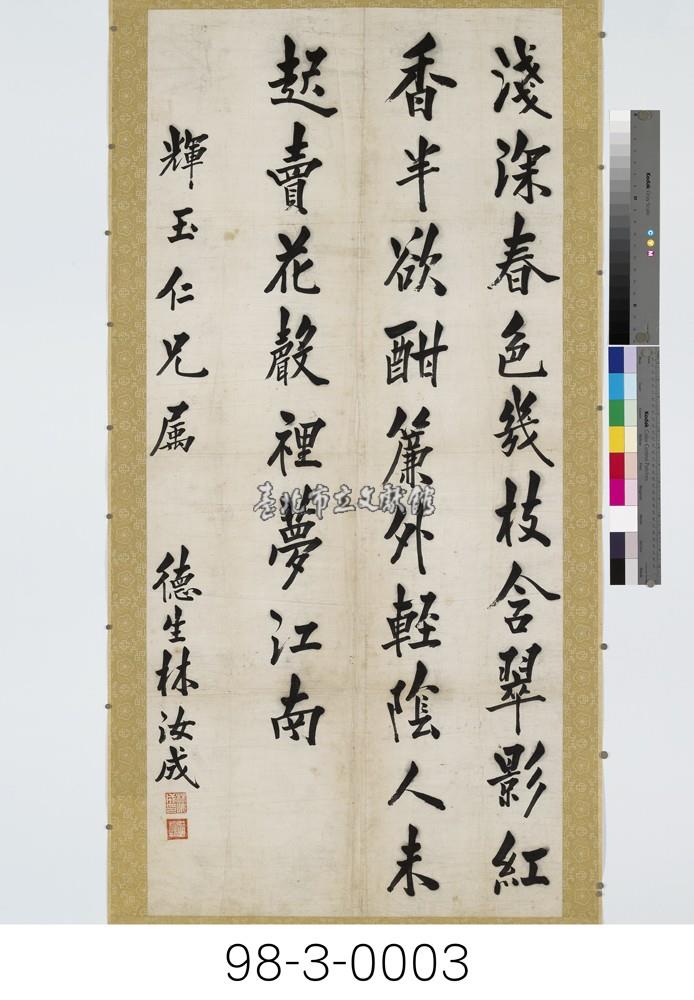 淺深春色幾枝含翠影紅
香半欲酣簾外輕陰人未
起賣花聲裡夢江南
輝玉仁兄属
德生林汝成
臺北市立文獻館
Kodak Gray Scale
C Y M
Kodak Color Control Patches
98-3-0003